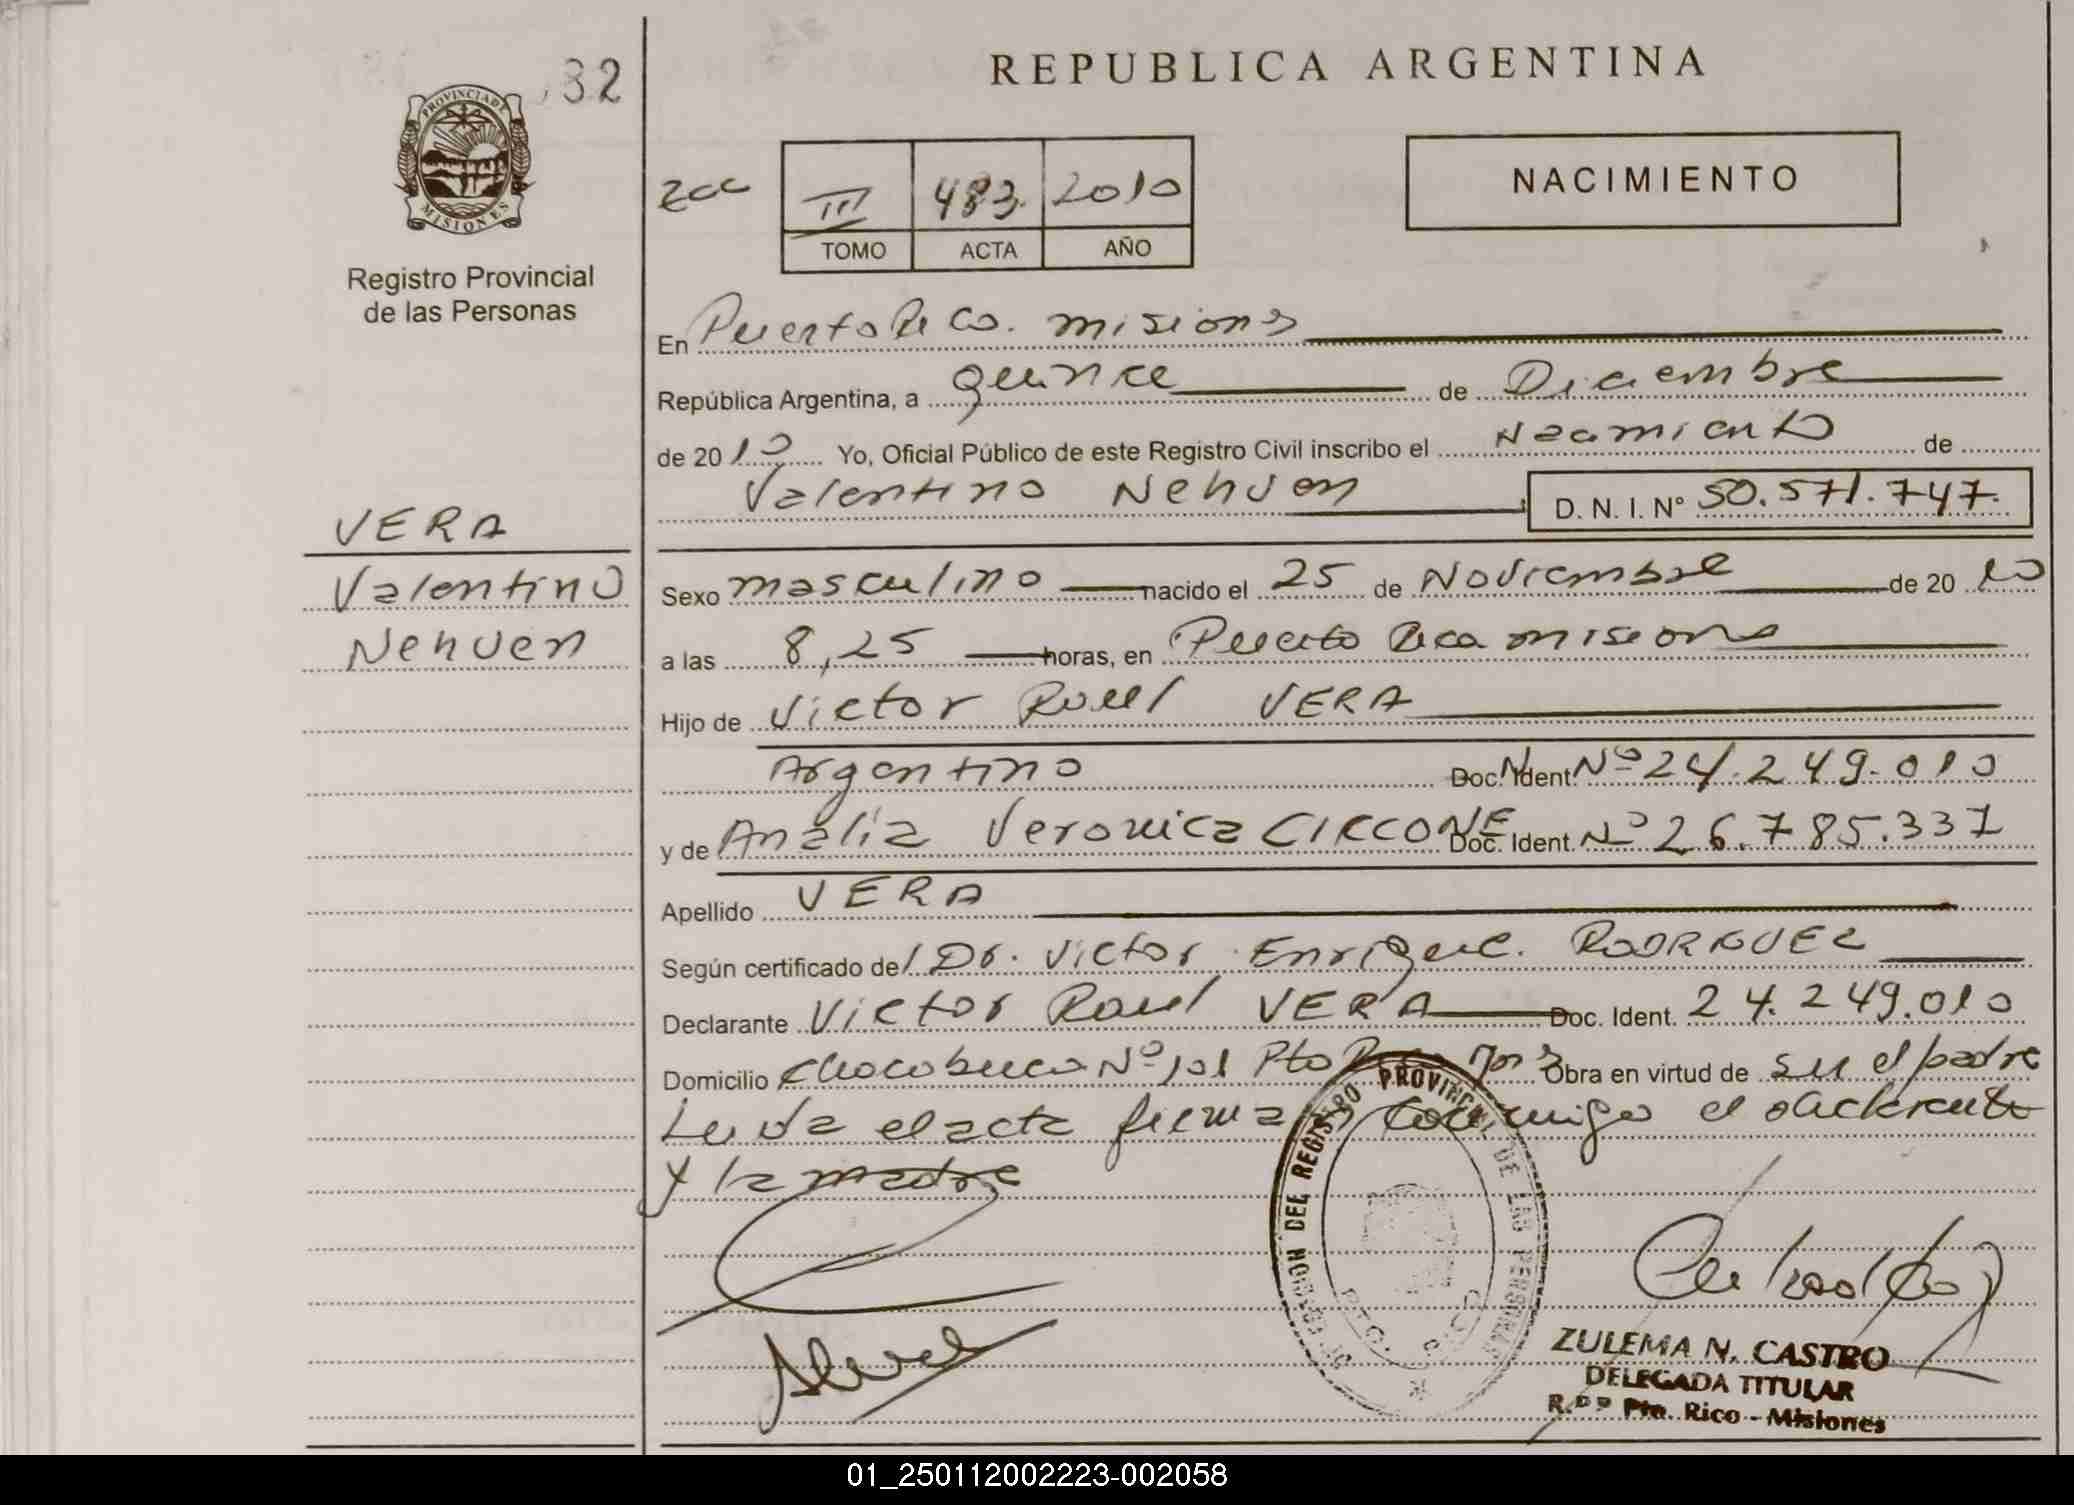 32
REPUBLICA ARGENTINA
PROVINCIA DE
MISIONES
Registro Provincial
de las Personas
III 483. 2010
TOMO ACTA AÑO
NACIMIENTO
En Puerto Rico. misiones
República Argentina, a quince de Diciembre
de 2010 Yo, Oficial Público de este Registro Civil inscribo el Nacimiento de
Valentino Nehuen D. N. I. N° 50.571.747.
VERA
Valentino
Nehuen
Sexo masculino nacido el 25 de Noviembre de 2010
a las 8,25 horas, en Puerto Rico misiones
Hijo de Victor Raul VERA
Argentino Doc. Ident. Nº 24.249.010
y de Analia Veronica CICCONE Doc. Ident. Nº 26.785.337
Apellido VERA
Según certificado del Dr. Victor Enrique. RODRIGUEZ
Declarante Victor Raul VERA Doc. Ident. 24.249.010
Domicilio Chacabuco Nº 101 Pto Rico Obra en virtud de su el padre
Leida el acta firma conmigo el declarante
y la madre
DELEGACION DEL REGISTRO PROVINCIAL DE LAS PERSONAS
PTO. RICO
ZULEMA N. CASTRO
DELEGADA TITULAR
R.P.P Pto. Rico - Misiones
01_250112002223-002058